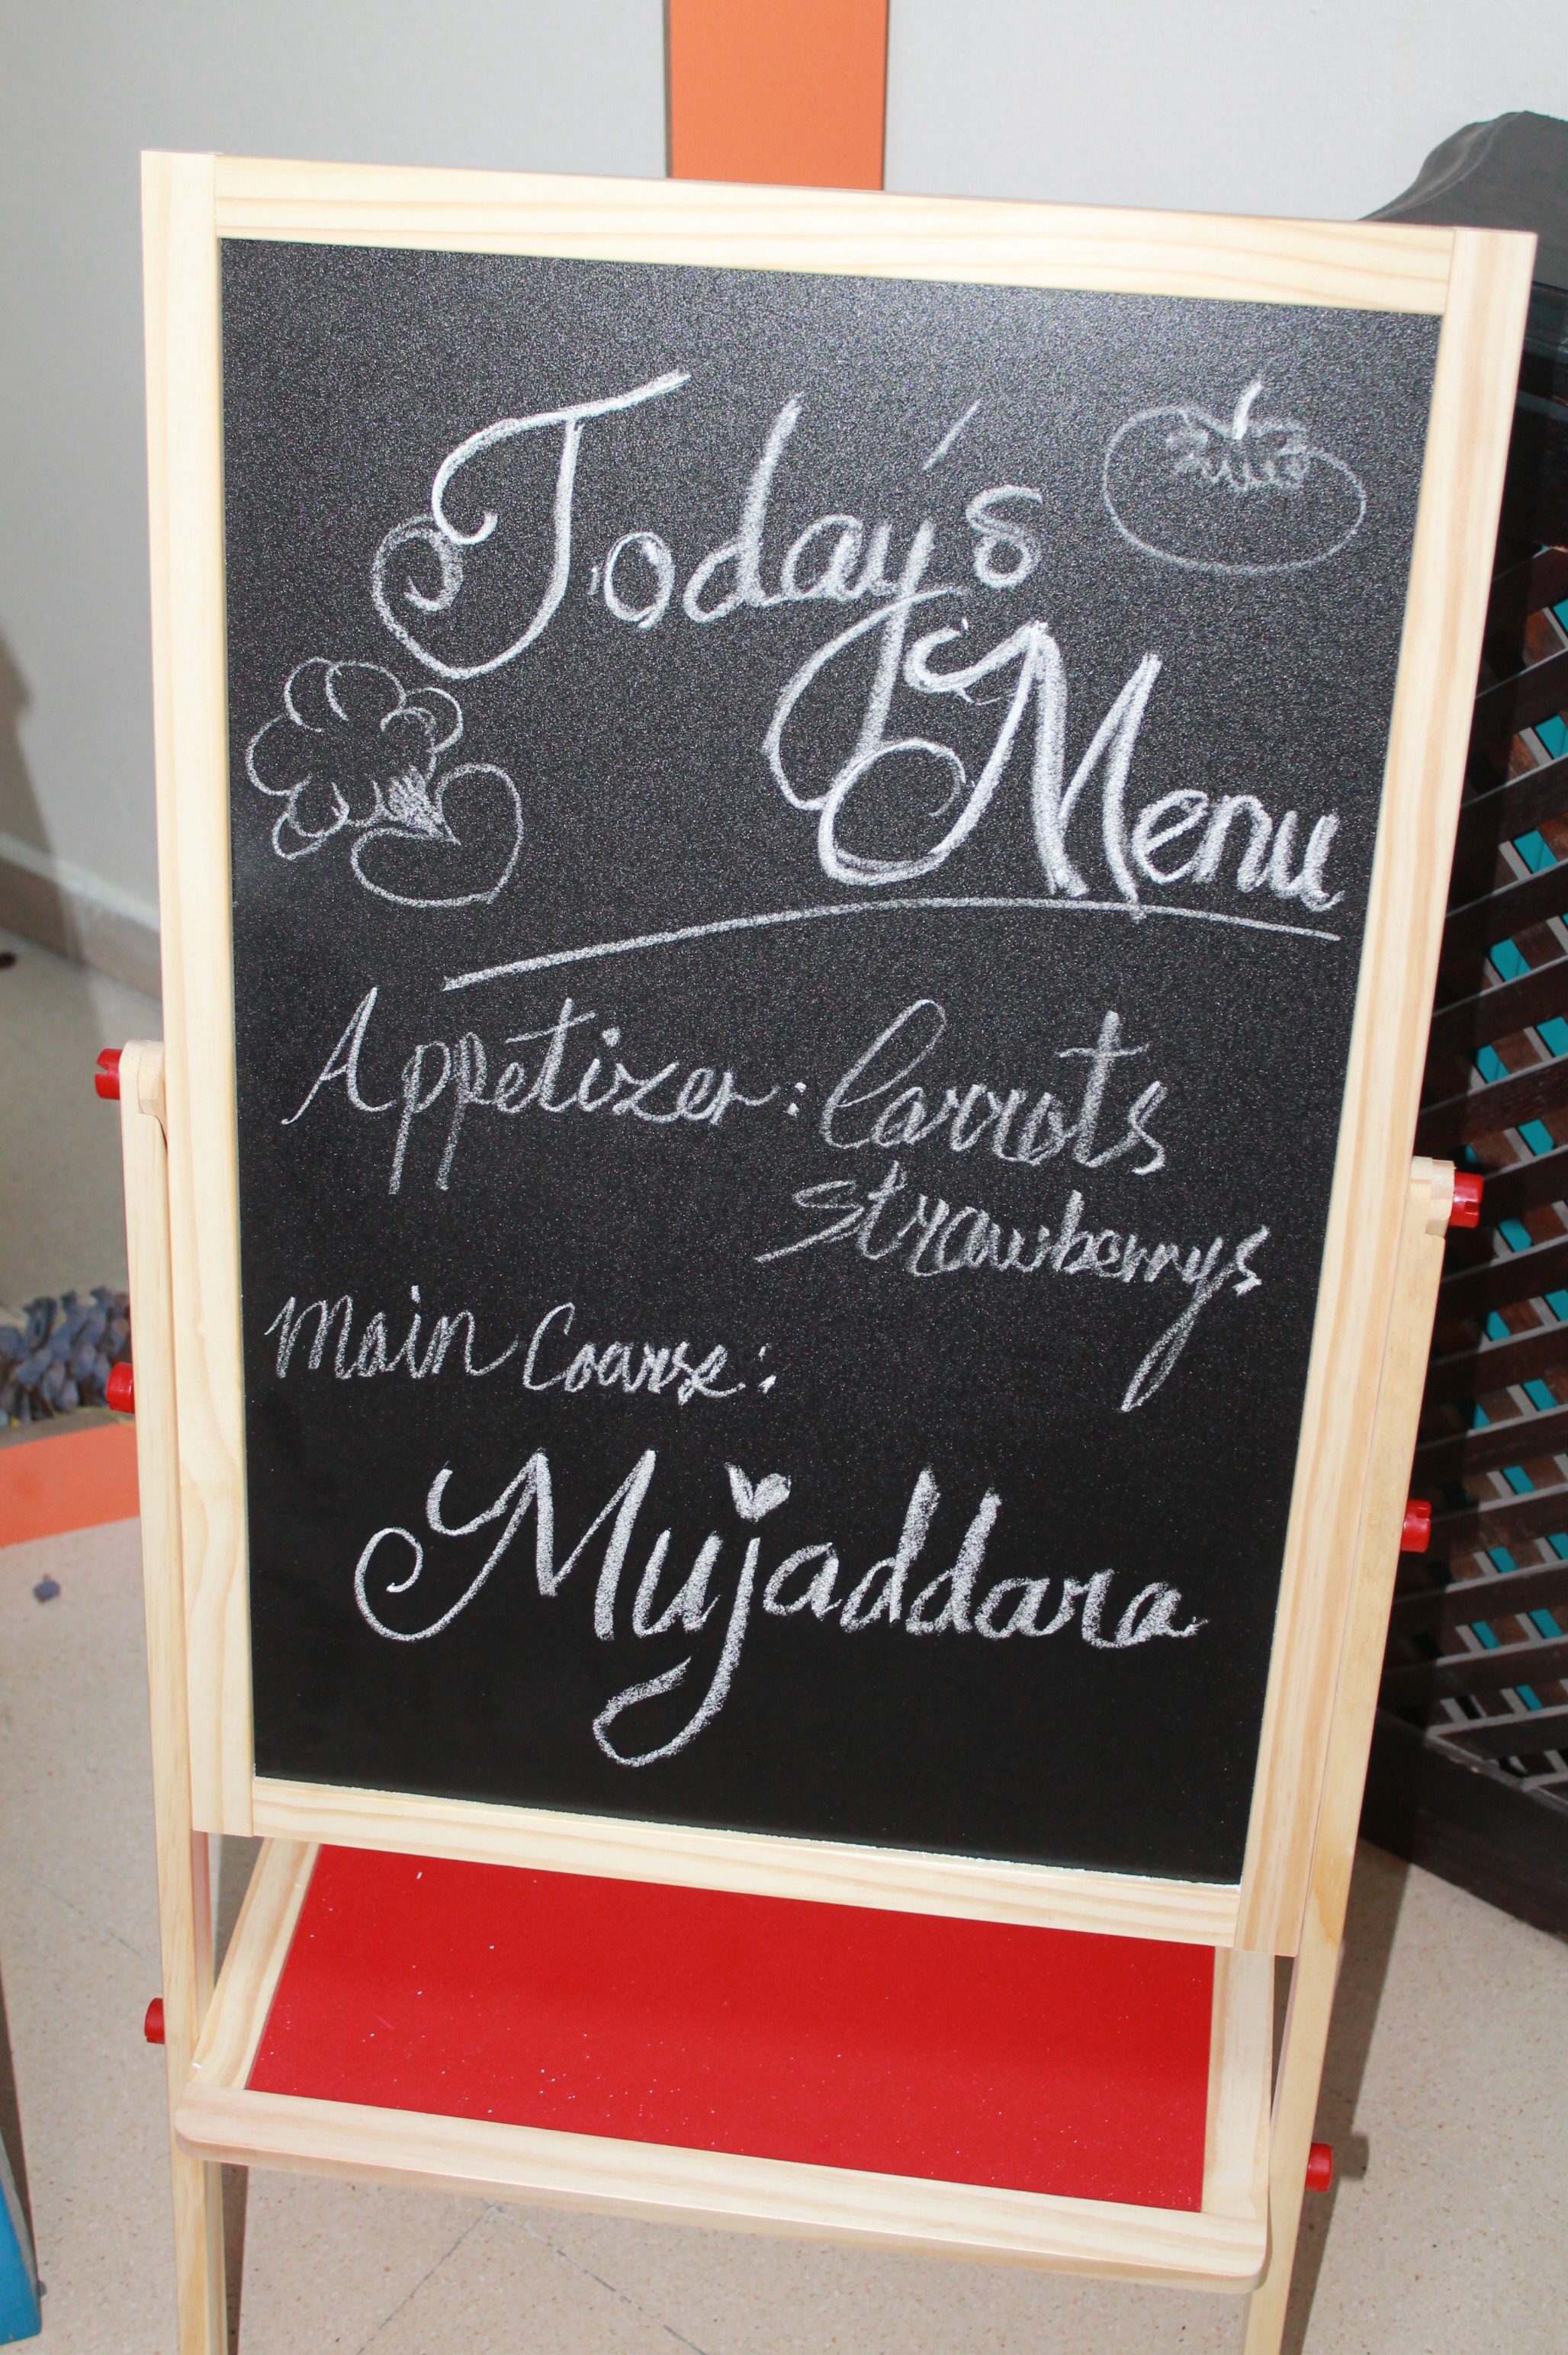 Today's
Menu
Appetizer: Carrots
strawberrys
Main Coarse:
Mujaddara